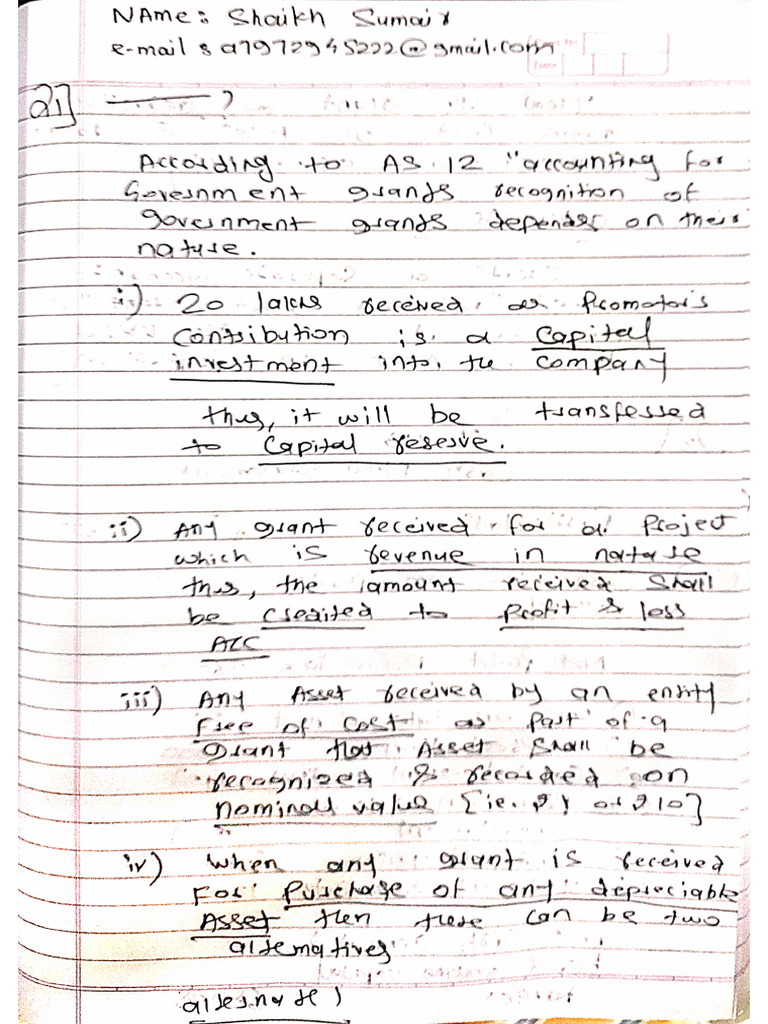 NAme: Shaikh Sumair
e-mail : a7972945222@gmail.com
Q1] ?
According to AS 12 "accounting for
Government grants recognition of
government grants depends on their
nature.
i) 20 lakhs received as Promotor's
Contribution is a Capital
investment into the company
thus, it will be transferred
to Capital reserve.
ii) Any grant received for a Project
which is revenue in nature
thus, the amount received shall
be credited to Profit & loss
A/C
iii) Any Asset received by an entity
free of cost as part of a
grant that Asset shall be
recognized & recorded on
nominal value [ie. ₹ 1 or ₹ 10]
iv) when any grant is received
For Purchase of any depreciable
Asset then there can be two
alternatives
alternate 1